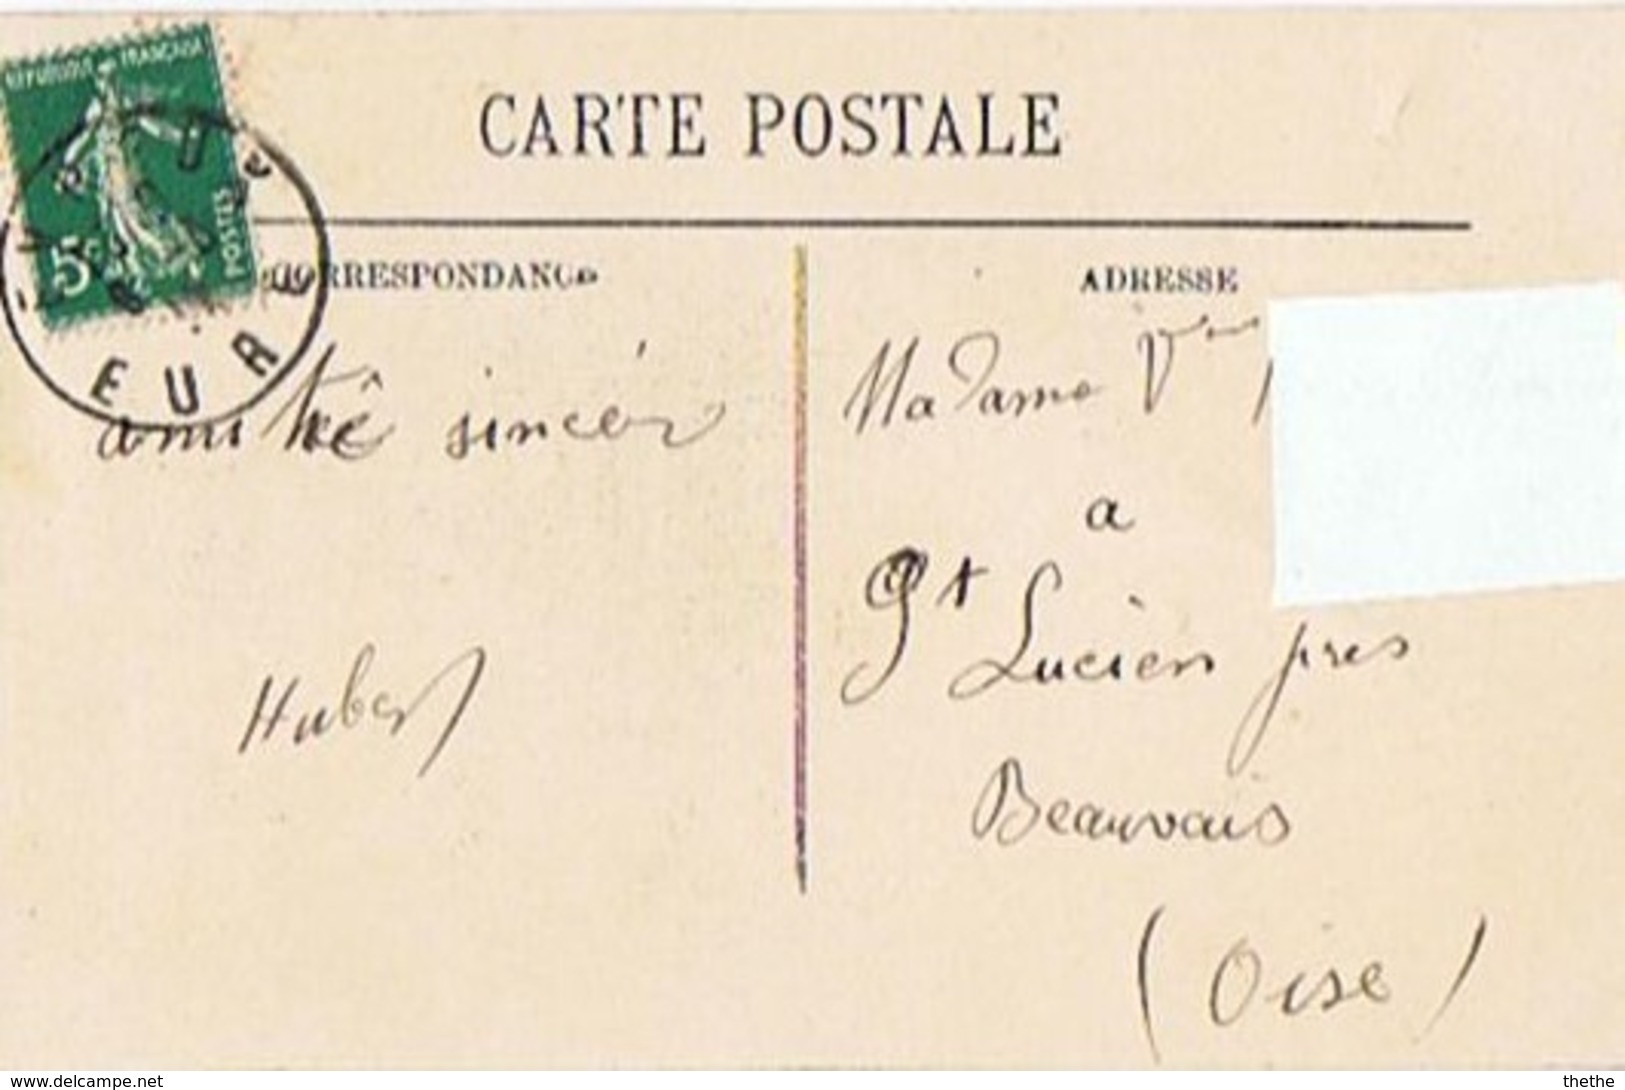 REPUBLIQUE FRANÇAISE
POSTES
5c
EURE
CARTE POSTALE
CORRESPONDANCE
ADRESSE
amitié sincère
Hubert
Madame Vve
a
St Lucien pres
Beauvais
(Oise)
delcampe.net
thethe